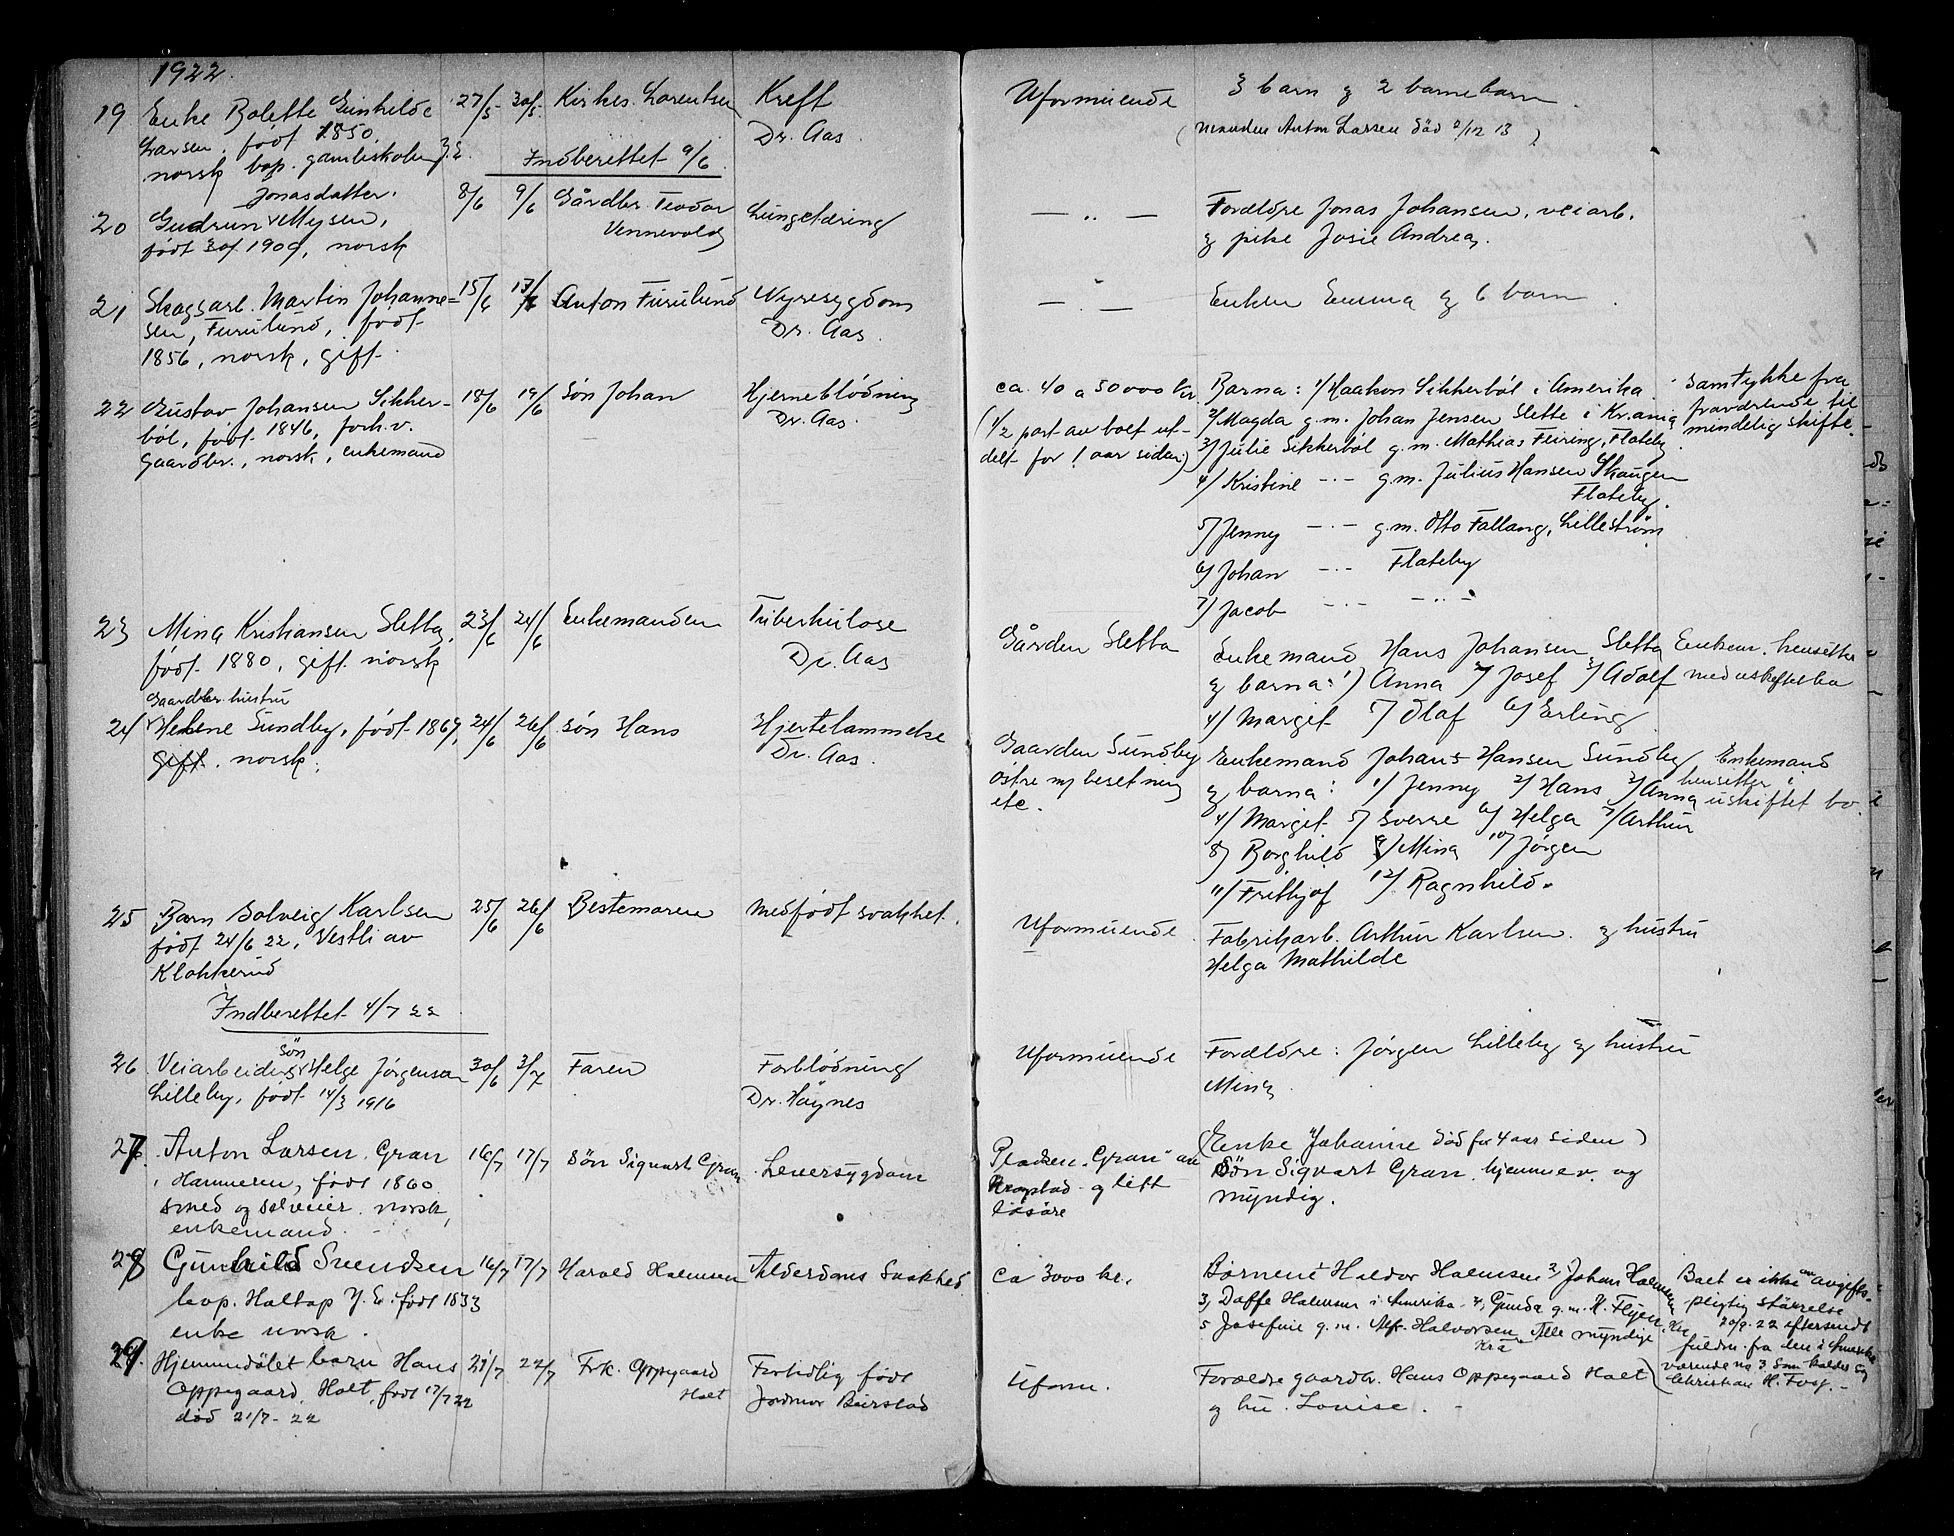 1922.
19 Enke Bolette Gunhilde 27/5 30/5 Kirkes. Lorentsen Kreft
Larsen, født 1850, Dr. Aas
norsk bop. gamleskolen Y.E. Indberettet 9/6
Jonasdatter.
20 Gudrun Mysen, 8/6 9/6 Gårdbr. Teodor Lungetæring
født 1909, norsk Vennevold
21 Skogsarb. Martin Johanne= 15/6 17/6 Anton Furulund Nyresygdom
sen, Furulund, født Dr. Aas.
1856, norsk, gift.
22 Gustav Johansen Sikker- 18/6 19/6 Søn Johan Hjerneblødning
bøl, født 1846, forh.v. Dr. Aas.
gaardbr., norsk, enkemand
23 Mina Kristiansen Sletta, 23/6 24/6 Enkemanden Tuberkulose
født 1880, gift norsk Dr. Aas
Gaardbr. hustru
24 Helene Sundby, født 1867, 24/6 26/6 søn Hans Hjertelammelse
gift. norsk. Dr. Aas.
25 Barn Solveig Karlsen 25/6 26/6 Bestemoren Medfødt svakhet.
født 24/6 22, Vestli av
Klokkerud
Indberettet 4/7 22
søn
26 Veiarbeider Helge Jørgensen 30/6 3/7 Faren Forblødning
Lilleby, født 14/3 1916 Dr. Høynes
27. Anton Larsen. Gran 16/7 17/7 Søn Sigvart Gran Leversygdom
i Hammeren, født 1860
smed og selveier. norsk,
enkemand.
28 Gunhild Svendsen 16/7 17/7 Harald Halvorsen Alderdoms Svakhed
bop. Haltop Y. E. født 1833
enke norsk.
29. Hjemmedøbt barn Hans 21/7 22/7 Frk. Oppegaard Fortidlig født
Oppegaard, Holt, født 17/7 22 Holt Jordmor Beirstad
død 21/7-22
Uformuende 3 barn og 2 barnebarn.
(manden Anton Larsen død /12 13)
— „ — Forældre Jonas Johansen, veiarb.
og pike Josie Andrea.
— „ — Enken Emma og 6 barn.
ca. 40 a 50000 kr. Barna: 1/ Haakon Sikkerbøl i Amerika. Samtykke fra
(1/2 part av boet ut- 2/ Magda g.m. Johan Jensen Slette i Kr.ania fraværende til
delt for 1 aar siden) 3/ Julie Sikkerbøl g.m. Mathias Feiring, Flateby mindelig skifte.
4/ Kristine -"- g.m. Julius Hansen Skaugen
Flateby.
5/ Jenny -"- g.m. Otto Fallang, Lillestrøm
6/ Johan -"- Flateby
7/ Jacob -"- -"-
Gården Sletta Enkemand Hans Johansen Sletta Enkem. hensitter
og barna: 1) Anna 2/ Josef 3/ Adolf med uskiftet bo
4/ Margit 5/ Olaf 6/ Erling
Gaarden Sundby Enkemand Johans Hansen Sundby Enkemand
østre m/ besetning og barna: 1/ Jenny 2/ Hans 3/ Anna hensitter i
etc. 4/ Margit 5/ Sverre 6/ Helga 7/ Arthur uskiftet bo.
8/ Borghild 9/ Mina 10/ Jørgen
11/ Frithjof 12/ Ragnhild.
Uformuende. Fabrikarb. Arthur Karlsen og hustru
Helga Mathilde
Uformuende Forældre: Jørgen Lilleby og hustru
Mina
Pladsen „Gran" av (Enke Johanne død for 4 aar siden)
Krogstad og litt Søn Sigvart Gran, hjemmev. og
løsøre myndig.
ca 3000 kr. Børnene Haldor Halvorsen 2, Johan Halvorsen Boet er ikke avgifts-
3, Daffe Halvorsen i Amerika. 4, Gunda g.m. H. Flyen. Kra pligtig størrelse
5 Josefine g.m. Alf. Halvorsen Kra Alle myndige 20/9. 22 eftersendt
fuldm. fra den i Amerika
værende no 3 som kalder sig
Christian H. Foss.-
Uform. Forældre gaardbr. Hans Oppegaard Holt
og hu. Louise.